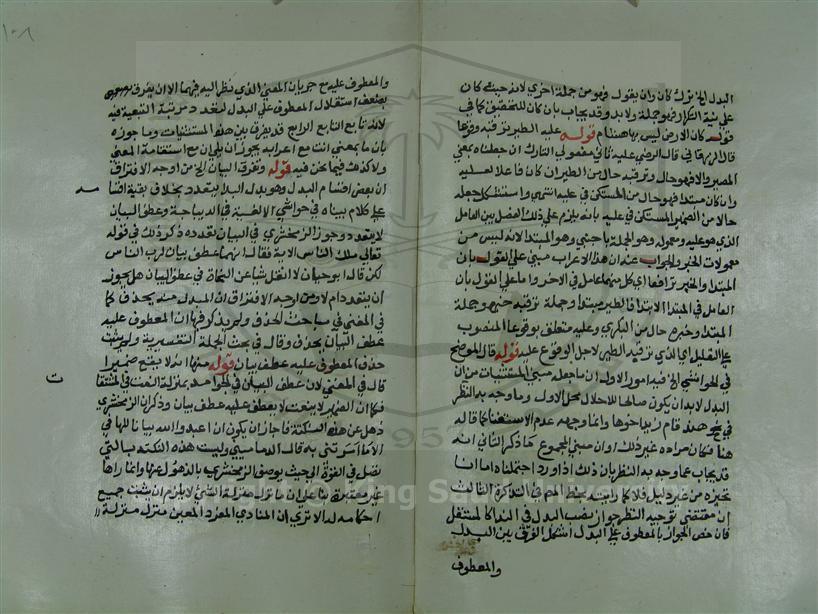 البدل الخ نزل كان وان يقول فهو من جملة اخري لانه حينئذ كان
علي نية التكرار فهو جملة ولا بد وقد يجاب بان كان للتحقيق كما في
قوله كان الارض ليس بها هشام قوله عليه الطير ترقبه وقوعا
قال الرضي عليه ثاني مفعولي التارك ان جعلناه بمعني
المصير والا فهو حال وترقبه حال من الطير ان كان فاعلا لعليه
وان كان مبتدا فهو حال من المستكن في عليه انتهي واستشكل جعله
حالا من الضمير المستكن في عليه بانه يلزم علي ذلك الفصل بين العامل
الذي هو عليه ومعموله وهو الجملة باجنبي وهو المبتدا لانه ليس من
معمولات الخبر والجواب عنه ان هذا الاعراب مبني علي القول بان
المبتدا والخبر ترافعا اي كل منهما عامل في الاخر واما علي القول بان
العامل في المبتدا الابتدا فالطير مبتدا وجملة ترقبه خبره وجملة
المبتدا وخبره حال من البكري وعليه متعلق بوقوعا المنصوب
علي التعليل اي الذي ترقبه الطير لاجل الوقوع عليه قوله قال الموضح
في الحواشي الخ فيه امور الاول ان ما جعله مبني المستثنيات من ان
البدل لا بد ان يكون صالحا للاحلال محل الاول وما وجه به النظر
في نحو هند قام زيد اخوها وانما وجهه عدم الاستغنا كما قاله
هنا فكان مراده غير ذلك او ان مبني المجموع كما ذكر الثاني انه
قد يجاب عما وجه به النظر بان ذلك اذا ورد احتملناه اما انا
نخيره من غير دليل فلا كما رايته بخط المص في التذكرة الثالث
ان مقتضي توجيه النظر جواز نصب البدل في الندا كالمستقل
فان خص الجواز بالمعطوف علي البدل اشكل الفرق بين البدل
والمعطوف
١٠٨
والمعطوف عليه مع جريان المعني الذي نظر اليه فيهما الا ان يفرق
بضعف استقلال المعطوف علي البدل لتعدد مرتبة التبعية فيه
لانه تابع التابع الرابع قد يفرق بين هذه المستثنيات وما جوزه
بان ما بمعني انت مع اعرابه يجوز ان يلي ان مع استقامة المعني
ولا كذلك فيما نحن فيه قوله وتفرق البيان الخ من اوجه الافتراق
ان بعض اقسام البدل وهو بدل البدا يتعدد بخلاف بقية اقسا
مه
علي كلام بيناه في حواشي الالفية في الديباجة وعطف البيان
لا يتعدد وجوز الزمخشري في البيان تعدده ذكر ذلك في قوله
تعالي ملك الناس الاية فقال انهما عطف بيان لرب الناس
لكن قال ابو حيان لا انقل شيا عن النحاة في عطف البيان هل يجوز
ان يتعدد ام لا ومن اوجه الافتراق ان المبدل منه يحذف كما
في المغني في مباحث الحذف ولم يذكر فيها ان المعطوف عليه
عطف البيان يحذف وقال في بحث الجملة التفسيرية ولم يثبت
حذف المعطوف عليه عطف بيان قوله منها انه لا يتبع ضميرا
قال في المغني لان عطف البيان في الجوامد بمنزلة النعت في المشتقا
ت
فكما ان الضمير لا ينعت لا يعطف عليه عطف بيان وذكر ان الزمخشري
ذهل عن هذه النكتة فاجاز ان يكون ان اعبدوا الله بيانا للها في
الا ما امرتني به قال الدماميني وليست هذه النكتة بالتي
تصل في القوة الي حيث يوصف الزمخشري بالذهول عنها وانما راها
غير معتبرة بنا علي ان ما نزل منزلة الشي لا يلزم ان يثبت جميع
احكامه له الا تري ان المنادي المفرد المعين منزل منزلة